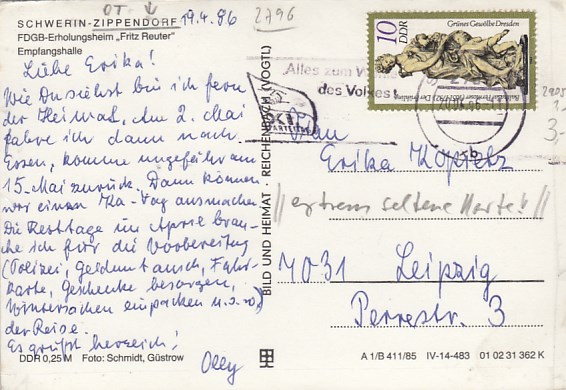 OT ↓
SCHWERIN-ZIPPENDORF 19.4.86 2796
FDGB-Erholungsheim „Fritz Reuter"
Empfangshalle
Liebe Erika!
Wie Du siehst bin ich fern
der Heimat. Am 2. Mai
fahre ich dann nach
Essen, komme ungefähr am
15. Mai zurück. Dann können
wir einen Ka-Tag ausmachen
Die Resttage im April brau-
che ich für die Vorbereitung
(Polizei, Geldumtausch, Fahr-
karte, Geschenke besorgen,
Wintersachen einpacken u.s.w.)
der Reise.
Es grüßt herzlich!
Olly
DDR 0,25 M Foto: Schmidt, Güstrow
BILD UND HEIMAT · REICHENBACH (VOGTL)
10
DDR
Grünes Gewölbe Dresden
Alles zum
des Volkes!
Frau
Erika Kopietz
//extrem seltene Karte!!//
7031 Leipzig
Perrestr. 3
3.
A 1/B 411/85 IV-14-483 01 02 31 362 K